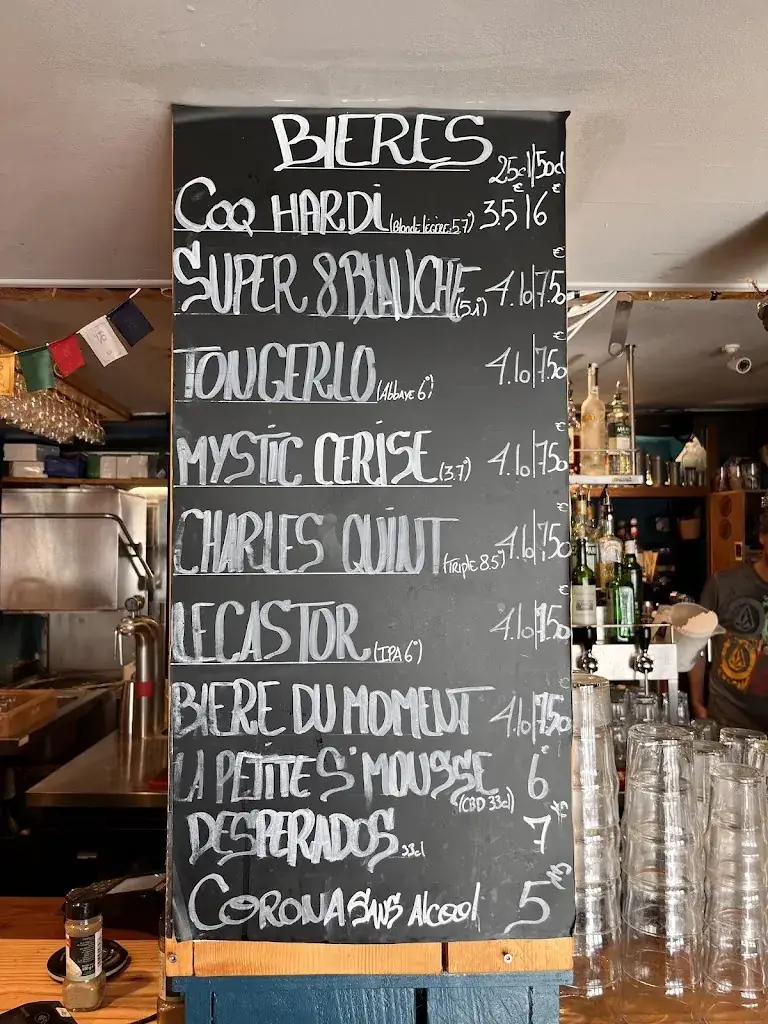 BIERES
25cl/50cl
COQ HARDi (Blonde légère 5.7°) 3.5€|6€
SUPER 8 BLAUCHE (5.1) 4.10|7.50€
TONGERLO (Abbaye 6°) 4.10|7.50€
MYSTIC CERISE (3.7°) 4.10|7.50€
CHARLES QUINT (Triple 8.5°) 4.10|7.50€
LE CASTOR (IPA 6°) 4.10|7.50€
BIERE DU MOMENT 4.10|7.50
LA PETITE S'MOUSSE (CBD 33cl) 6
DESPERADOS 33cl 7
CORONA SANS Alcool 5